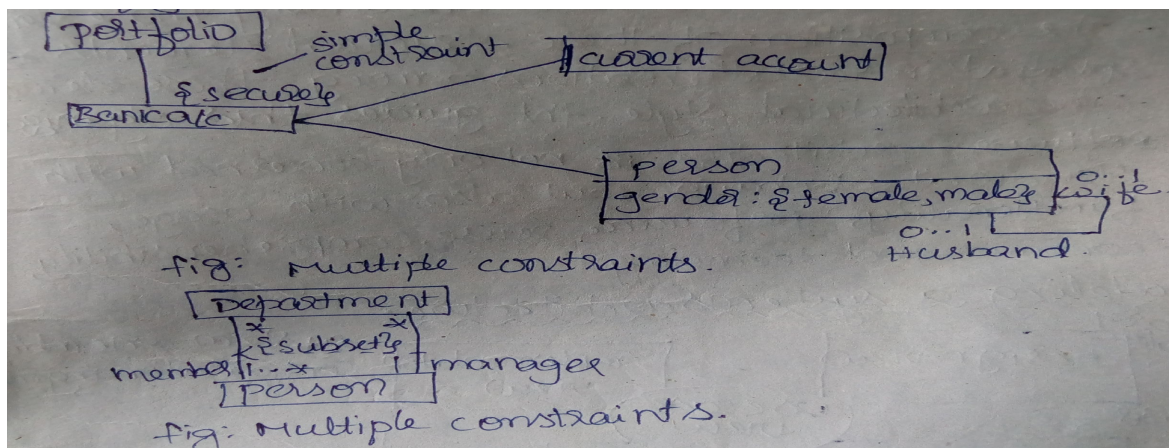 Portfolio
simple
constraint
current account
{secure}
Bank a/c
person
gender: {female, male}
0..1
wife
0...1
Husband.
fig: Multiple constraints.
Department
* *
{subset}
member 1...* 1 manager
person
fig: Multiple constraints.